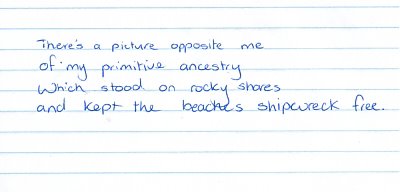 There's a picture opposite me
of my primitive ancestry
Which stood on rocky shores
and kept the beaches shipwreck free.